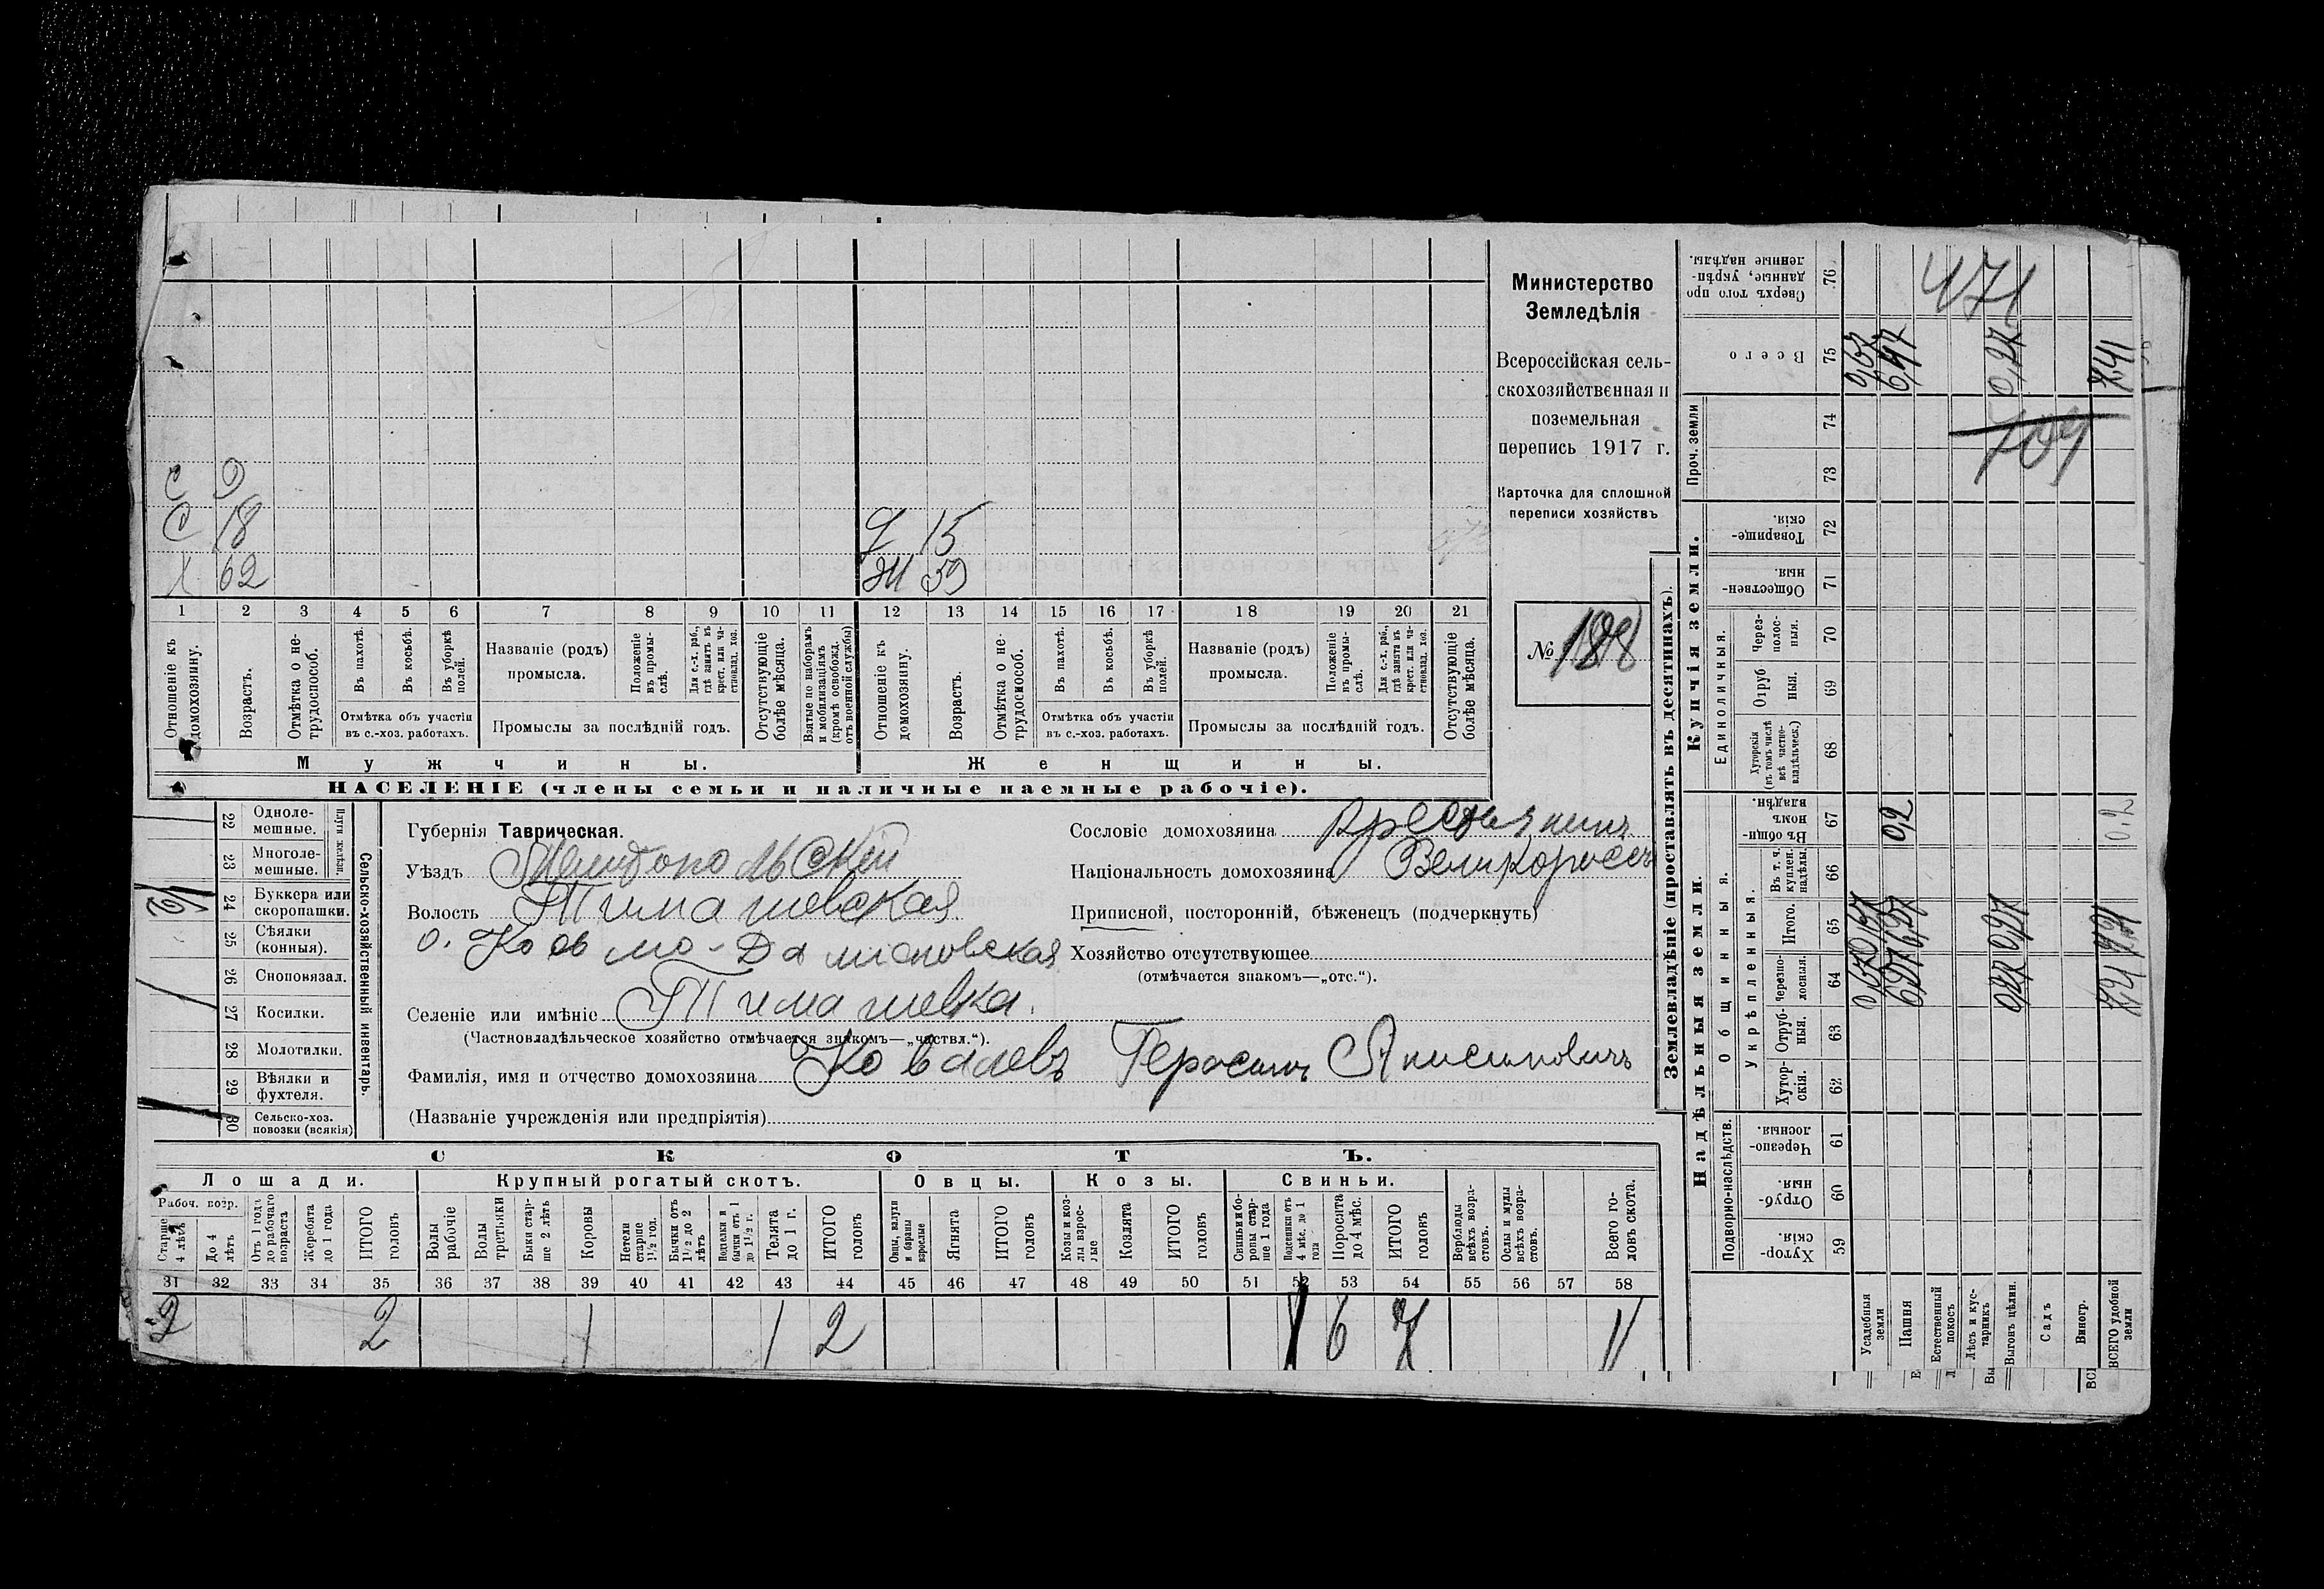 Министерство
Земледѣлія
Всероссійская сель-
скохозяйственная и
поземельная
перепись 1917 г.
Карточка для сплошной
переписи хозяйствъ
№
С 9
С 18 Д 15
Х 62 Ж 59
1 2 3 4 5 6 7 8 9 10 11 12 13 14 15 16 17 18 19 20 21
Отношеніе къ домохозяину.
Возрастъ.
Отмѣтка о не-трудоспособ.
Въ пахотѣ.
Въ косьбѣ.
Въ уборкѣ полей.
Отмѣтка объ участіи
въ с.-хоз. работахъ.
Названіе (родъ)
промысла.
Положеніе въ промы-слѣ.
Для с.-х. раб., гдѣ занятъ въ крест. или ча-стновлад. хоз.
Промыслы за послѣдній годъ.
Отсутствующіе болѣе мѣсяца.
Взятые по наборамъ и мобилизаціямъ (кромѣ освобожд. отъ военной службы)
Отношеніе къ домохозяину.
Возрастъ.
Отмѣтка о не-трудоспособ.
Въ пахотѣ.
Въ косьбѣ.
Въ уборкѣ полей.
Отмѣтка объ участіи
въ с.-хоз. работахъ.
Названіе (родъ)
промысла.
Положеніе въ промы-слѣ.
Для с.-х. раб., гдѣ занята въ крест. или ча-стновлад. хоз.
Промыслы за послѣдній годъ.
Отсутствующіе болѣе мѣсяца.
Мужчины. Женщины.
НАСЕЛЕНІЕ (члены семьи и наличные наемные рабочіе).
Сельско-хозяйственный инвентарь.
Плуги желѣзн.
22 Одноле-мешные.
23 Многоле-мешные.
24 Буккера или скоропашки.
25 Сѣялки (конныя).
26 Сноповязал.
27 Косилки.
28 Молотилки.
29 Вѣялки и фухтеля.
30 Сельско-хоз. повозки (всякія)
Губернія Таврическая.
Уѣздъ Мелитопольскій
Волость Тимашевская
о. Косьмо-Даміановская
Селеніе или имѣніе Тимашевка.
(Частновладѣльческое хозяйство отмѣчается знакомъ—„частвл.“).
Фамилія, имя и отчество домохозяина Ковалевъ Герасимъ Анисимовичъ
(Названіе учрежденія или предпріятія)
Сословіе домохозяина крестьянинъ
Національность домохозяина Великороссъ
Приписной, посторонній, бѣженецъ (подчеркнуть)
Хозяйство отсутствующее
(отмѣчается знакомъ—„отс.“).
СКОТЪ.
Лошади. Крупный рогатый скотъ. Овцы. Козы. Свиньи.
Рабоч. возр.
Старше 4 лѣтъ
До 4 лѣтъ
Отъ 1 года до рабочаго возраста
Жеребята до 1 года
ИТОГО головъ
Волы рабочіе
Волы третьяки
Быки стар-ше 2 лѣтъ
Коровы
Нетели старше 1½ год.
Бычки отъ 1½ до 2 лѣтъ
Подтелки и бычки отъ 1 до 1½ г.
Телята до 1 г.
ИТОГО головъ
Овцы, валухи и бараны взрослые
Ягнята
ИТОГО головъ
Козы и коз-лы взрос-лые
Козлята
ИТОГО головъ
Свиньи и бо-ровы стар-ше 1 года
Подсвинки отъ 4 мѣс. до 1 года
Поросята до 4 мѣс.
ИТОГО головъ
Верблюды всѣхъ возра-стовъ.
Ослы и мулы всѣхъ возра-стовъ.
Всего го-ловъ скота.
31 32 33 34 35 36 37 38 39 40 41 42 43 44 45 46 47 48 49 50 51 52 53 54 55 56 57 58
2 2 1 1 2 1 6 7 11
Землевладѣніе (проставлять въ десятинахъ).
Надѣльныя земли.
Купчія земли.
Проч. земли
Подворно-наслѣдств.
Общинныя.
Укрѣпленныя.
Единоличныя.
59 Хутор-скія.
60 Отруб-ныя.
61 Черезпо-лосныя.
62 Хутор-скія.
63 Отруб-ныя.
64 Черезпо-лосныя.
65 Итого.
66 Въ т. ч. куплен. надѣлы.
67 Въ общи-номъ владѣн.
68 Хуторскія (въ томъ числѣ всѣ частно-владѣльческ.)
69 Отрубныя.
70 Через-полос-ныя.
71 Обществен-ныя.
72 Товарище-скія.
73
74
75 Всего
76 Сверхъ того про данные, укрѣп-ленные надѣлы.
Усадебныя земли
Пашня
Естественный покосъ
Лѣсъ и кус-тарникъ
Выгонъ цѣлин.
Садъ
Виногр.
ВСЕГО удобной земли
0,67
6,47
0,27
7,41
0,2
0.2
471
709